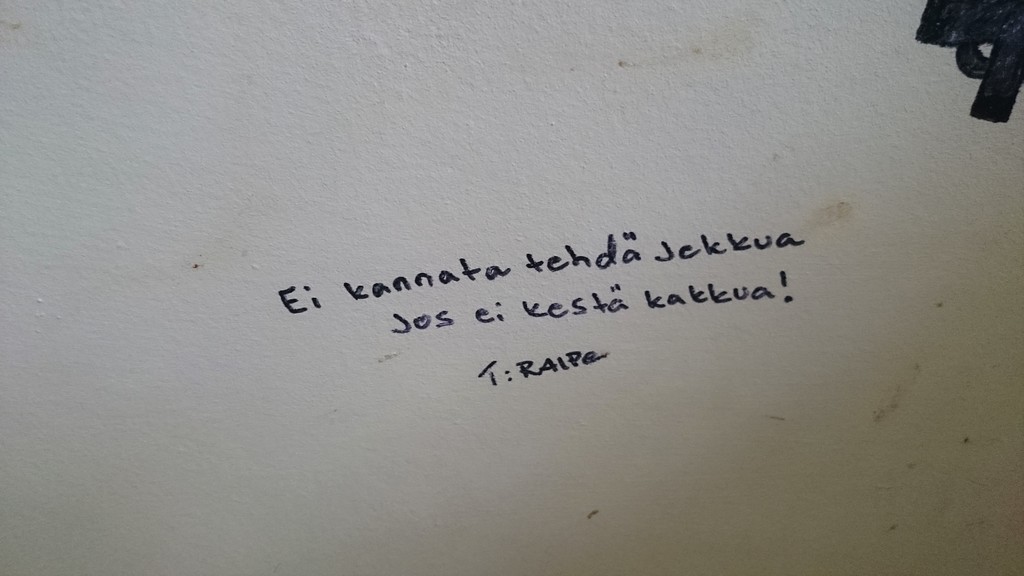 Ei kannata tehdä jekkua
jos ei kestä kakkua!
T: RAIPE